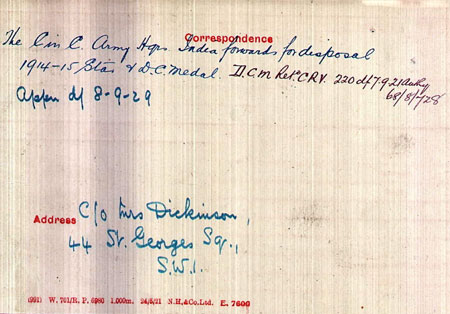 Correspondence
The C in C. Army Hqrs. India forwards for disposal
1914-15 Star & D.C. Medal. D.C.M Ret CRV. 220 d/ 7-9-21
68/8/728
Appn d/ 8-9-29
Address C/o Mrs Dickinson,
44 St. Georges Sq.,
S.W.1.
(991) W. 701/R. P. 6980 1,000m. 24/5/21 N.H.&Co.Ltd. E. 7600